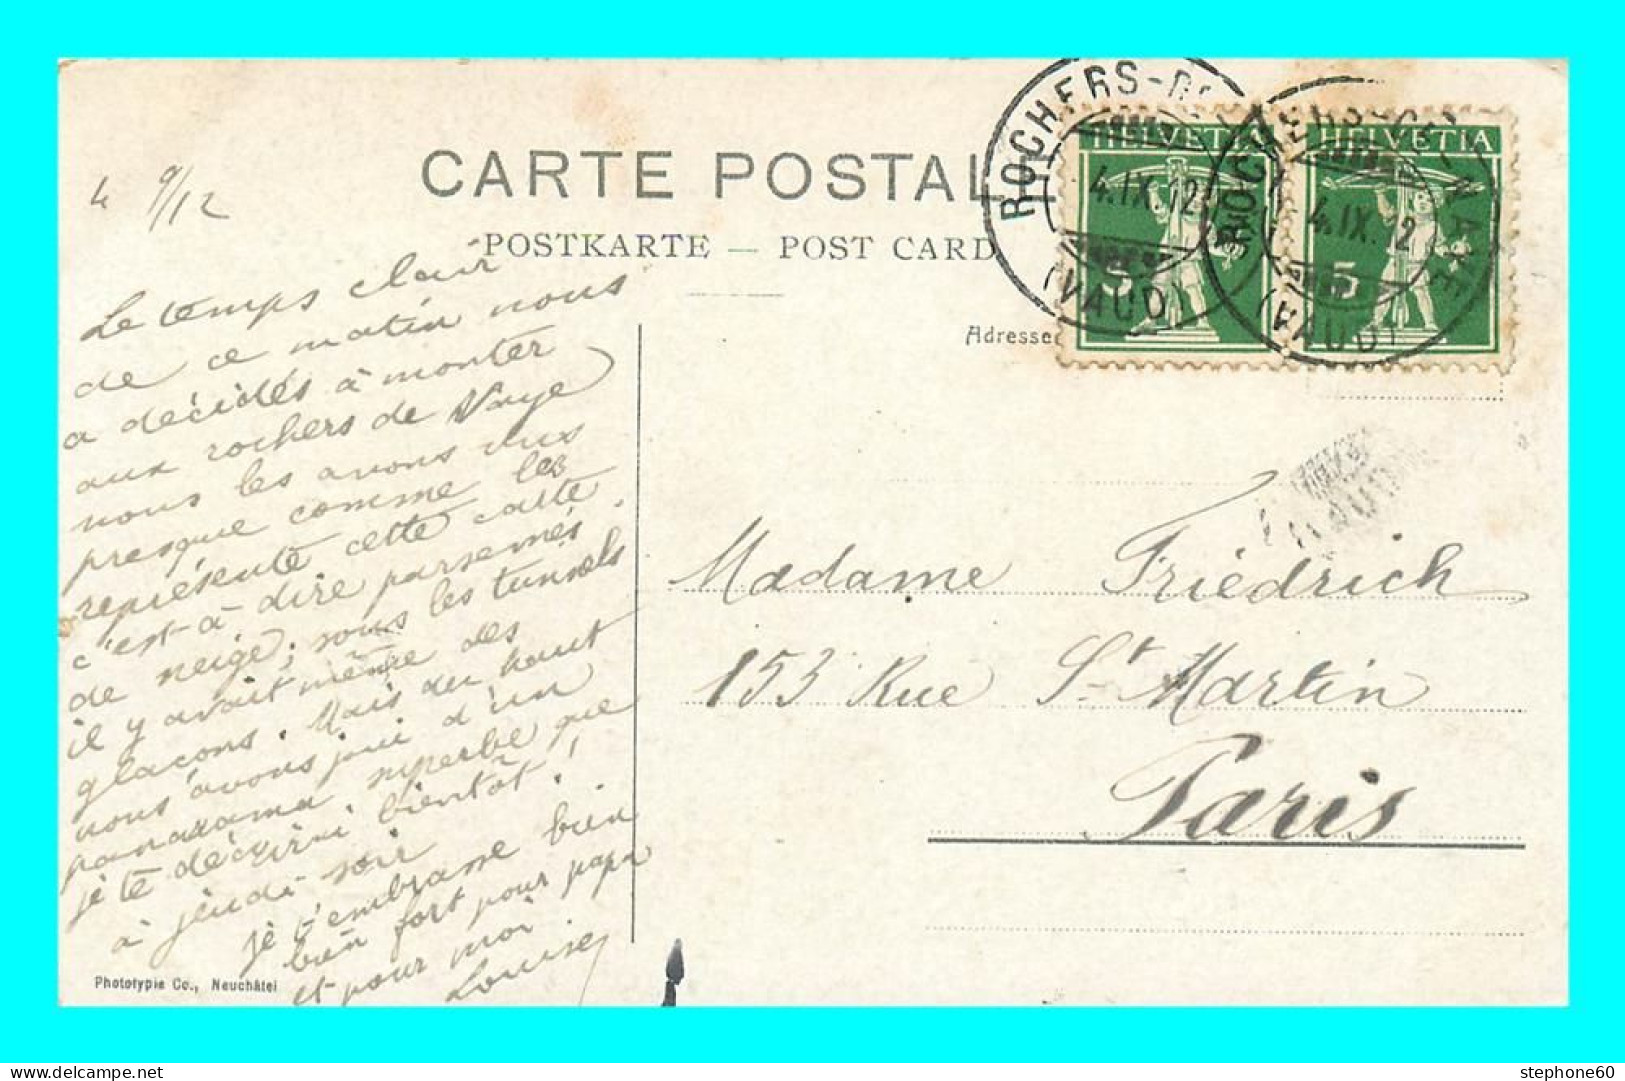 CARTE POSTALE
POSTKARTE — POST CARD
4 9/12
Le temps clair
de ce matin nous
a décidés à monter
aux rochers de Naye
nous les avons vus
presque comme les
représente cette carte
c'est-à-dire parsemés
de neige; sous les tunnels
il y avait même des
glaçons. Mais du haut
nous avons joui d'un
panorama superbe que
je te décrirai bientôt!
à jeudi soir
je t'embrasse bien
bien fort pour papa
et pour moi
Louise
Phototypie Co., Neuchâtel
HELVETIA
5
HELVETIA
5
ROCHERS-DE
4.IX.12
(VAUD)
ROCHERS-DE-NAYE
4.IX.12
(VAUD)
Adresse
Madame Friédrich
153 Rue St Martin
Paris
stephone60